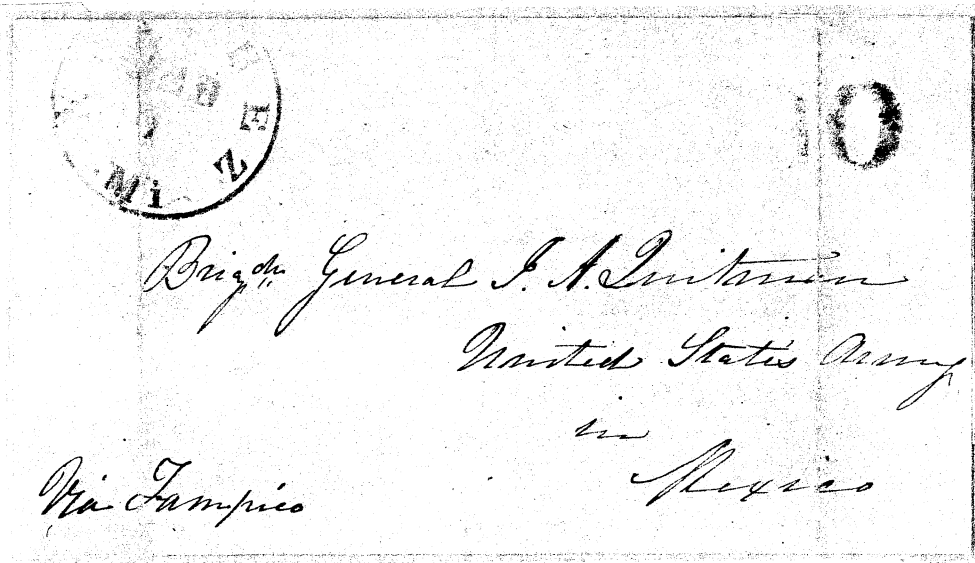 HEZ
Mi
10
Brigdr. General J. A. Quitman
United States Army
in
Mexico
Via Tampico